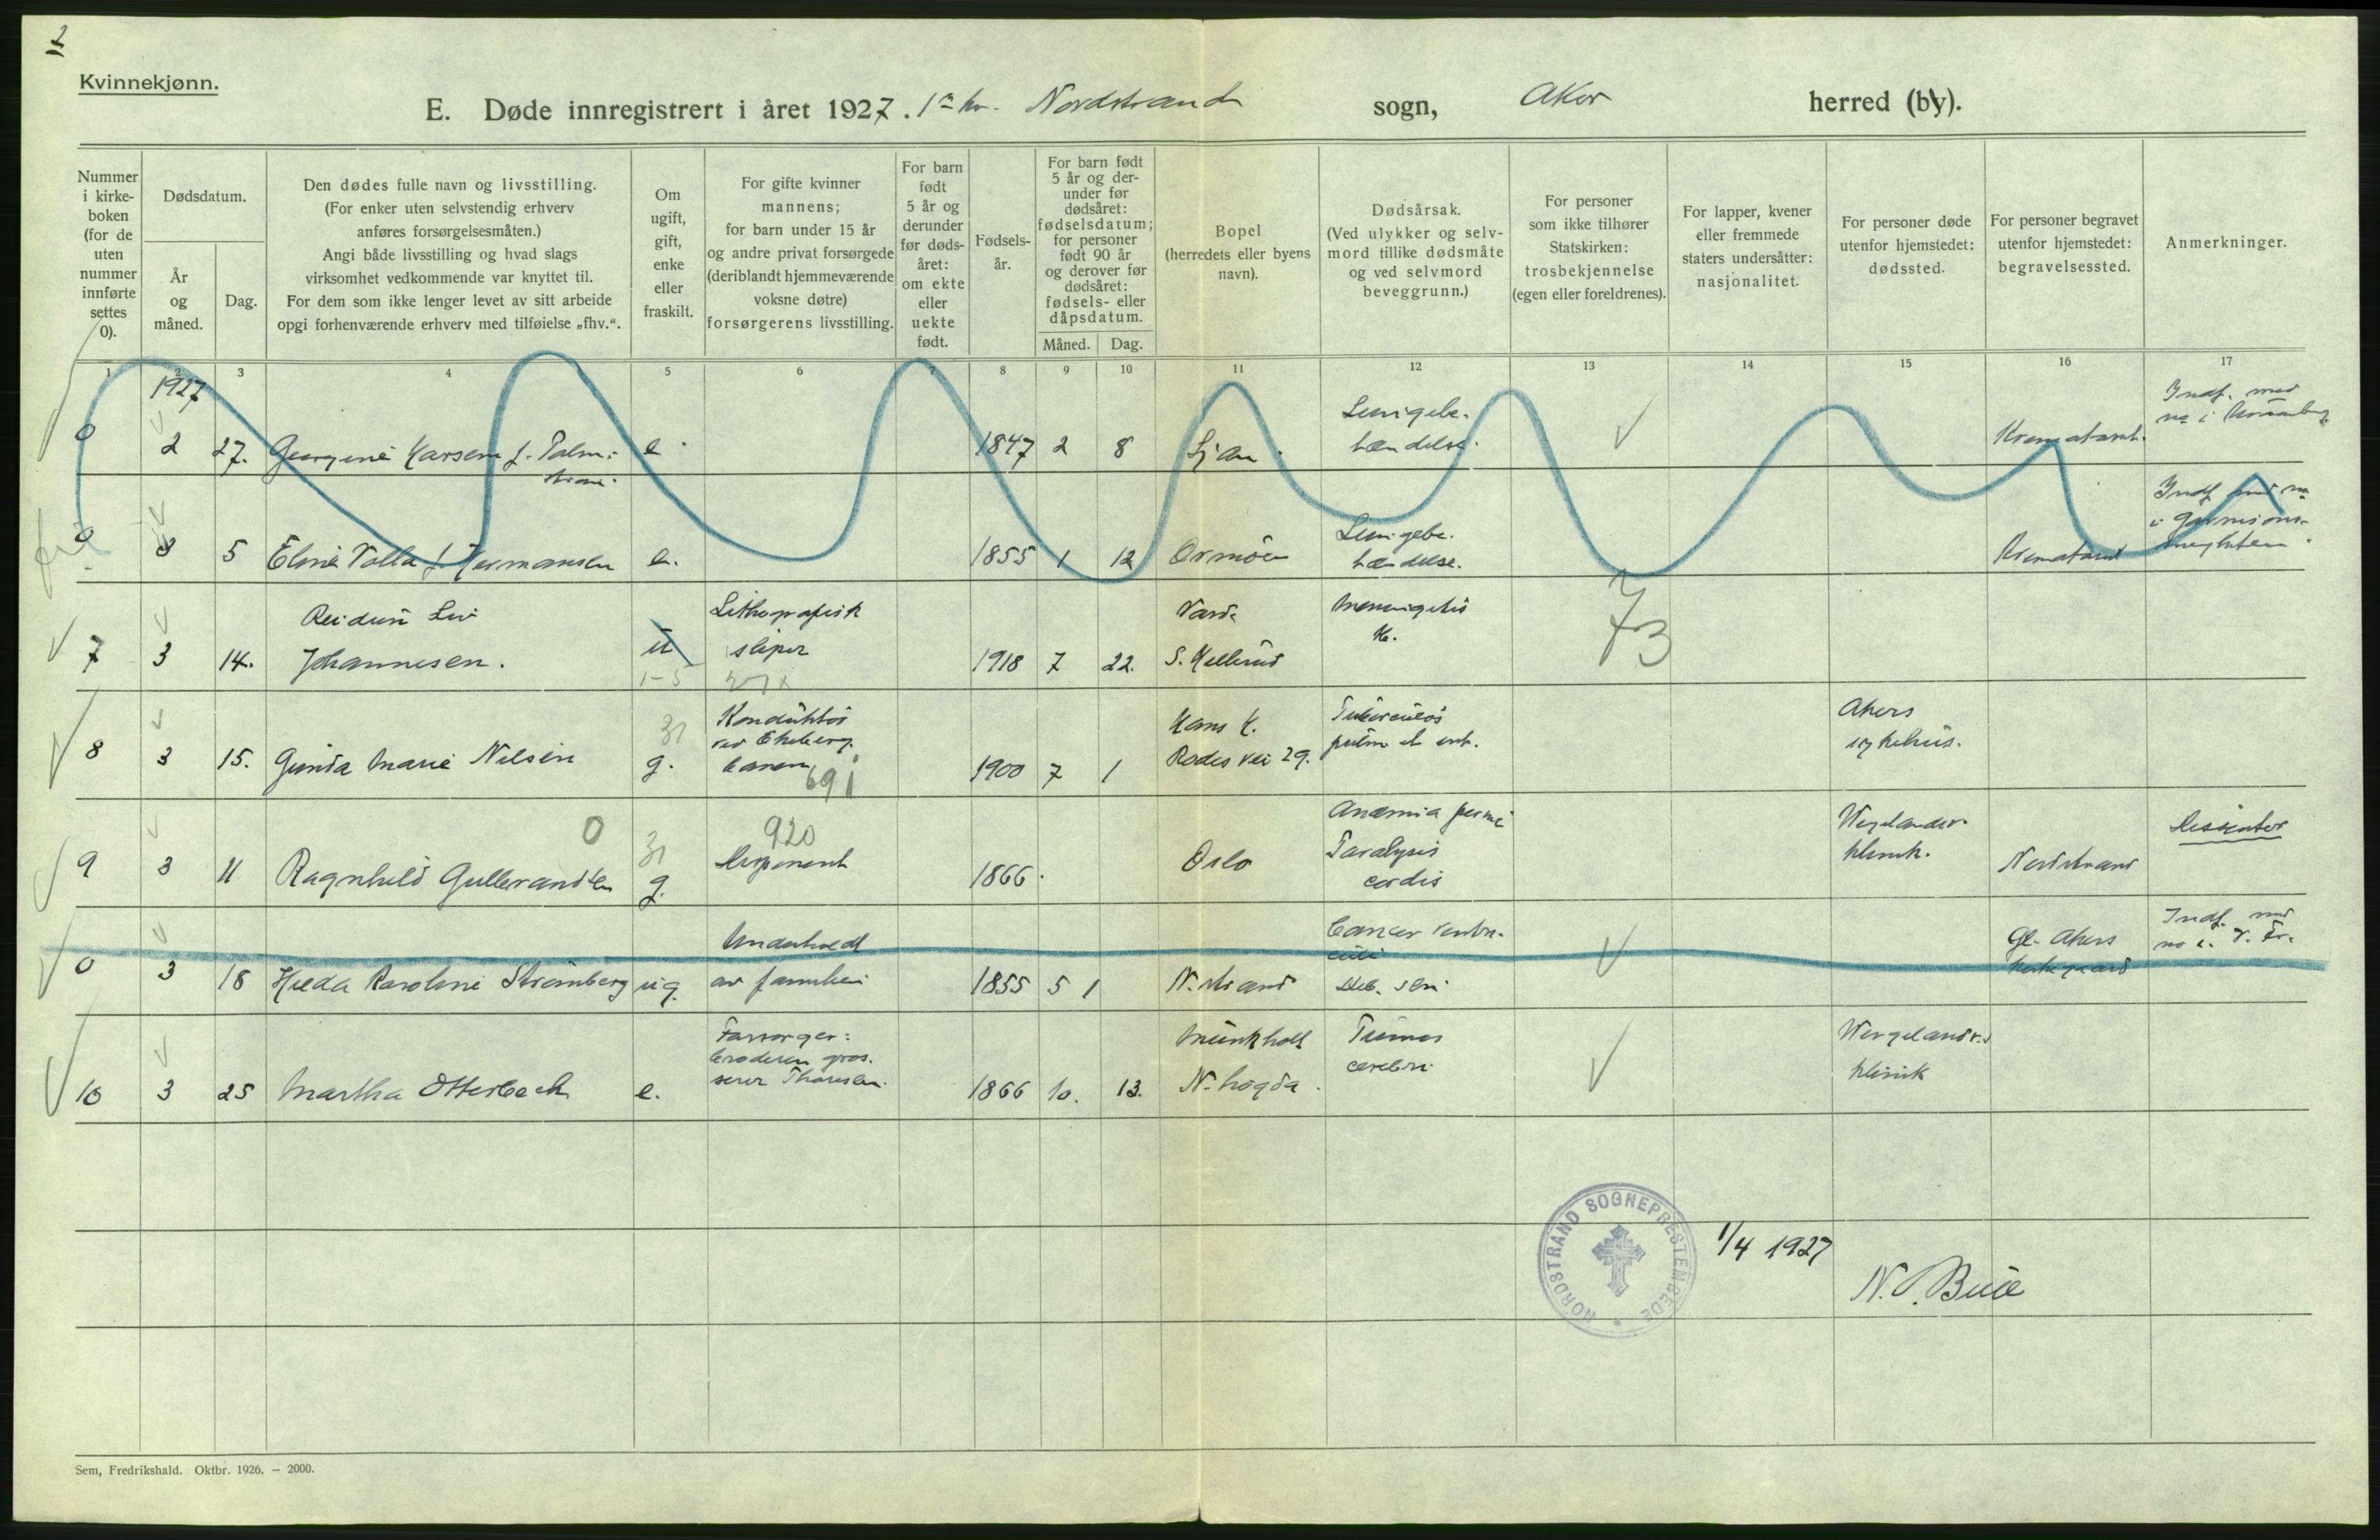 2
Kvinnekjønn.
E. Døde innregistrert i året 1927. 1ste kv. Nordstrand sogn, Aker herred (by).
Nummer
i kirke-
boken
(for de
uten
nummer
innførte
settes
0).
Dødsdatum.
År
og
måned.
Dag.
Den dødes fulle navn og livsstilling.
(For enker uten selvstendig erhverv
anføres forsørgelsesmåten.)
Angi både livsstilling og hvad slags
virksomhet vedkommende var knyttet til.
For dem som ikke lenger levet av sitt arbeide
opgi forhenværende erhverv med tilføielse „fhv.“.
Om
ugift,
gift,
enke
eller
fraskilt.
For gifte kvinner
mannens;
for barn under 15 år
og andre privat forsørgede
(deriblandt hjemmeværende
voksne døtre)
forsørgerens livsstilling.
For barn
født
5 år og
derunder
før døds-
året:
om ekte
eller
uekte
født.
Fødsels-
år.
For barn født
5 år og der-
under før
dødsåret:
fødselsdatum;
for personer
født 90 år
og derover før
dødsåret:
fødsels- eller
dåpsdatum.
Måned.
Dag.
Bopel
(herredets eller byens
navn).
Dødsårsak.
(Ved ulykker og selv-
mord tillike dødsmåte
og ved selvmord
beveggrunn.)
For personer
som ikke tilhører
Statskirken:
trosbekjennelse
(egen eller foreldrenes).
For lapper, kvener
eller fremmede
staters undersåtter:
nasjonalitet.
For personer døde
utenfor hjemstedet:
dødssted.
For personer begravet
utenfor hjemstedet:
begravelsessted.
Anmerkninger.
1 2 3 4 5 6 7 8 9 10 11 12 13 14 15 16 17
1927
0 2 27. Georgine Karsen f. Palm-
strøm.
e. 1847 2 8 Ljan.
Lungebe-
tændelse.
Krematoriet.
Indf. med
no i
0 3 5 Eline Volla f. Hermansen e. 1855 1 12 Ormøen
Lungebe-
tændelse.
Krematoriet
Indf. med no
i Garnisons-
menigheten.
7 3 14.
Reidun Liv
Johannesen.
u
1-5
Lithografisk
sliper
1918 7 22.
Varde
S.
meningitis
tb.
73
8 3 15. Gunda Marie Nilsen
31
g.
Konduktør
ved Ekeberg-
banen
691
1900 7 1
Hans H.
Rodes vei 29.
Tuberculos
pulm et int.
Akers
sykehus.
9 3 11 Ragnhild Gulbrandsen
0
31
g.
920
Disponent
1866.
Oslo
Anæmia perni-
Paralysis
cordis
Wergelands-
klinik.
Nordstrand
Dissenter
0 3 18 Hilda Karoline Strømberg ug.
Underholdt
av familien
1855 5 1 N. strand
Cancer ventri-
culi
Deb. sen.
Gl. Akers
kirkegaard
Indf. med
no i. V. Fr.
10 3 25 Martha Otterbech e.
Forsørger:
broderen gros-
serer Thoresen.
1866 10. 13.
Munkholt
N. høgda.
Tumor
cerebri
Wergelands.
klinik
NORDSTRAND SOGNEPRESTEMBEDE
1/4 1927
N.
Sem, Fredrikshald. Oktbr. 1926. — 2000.